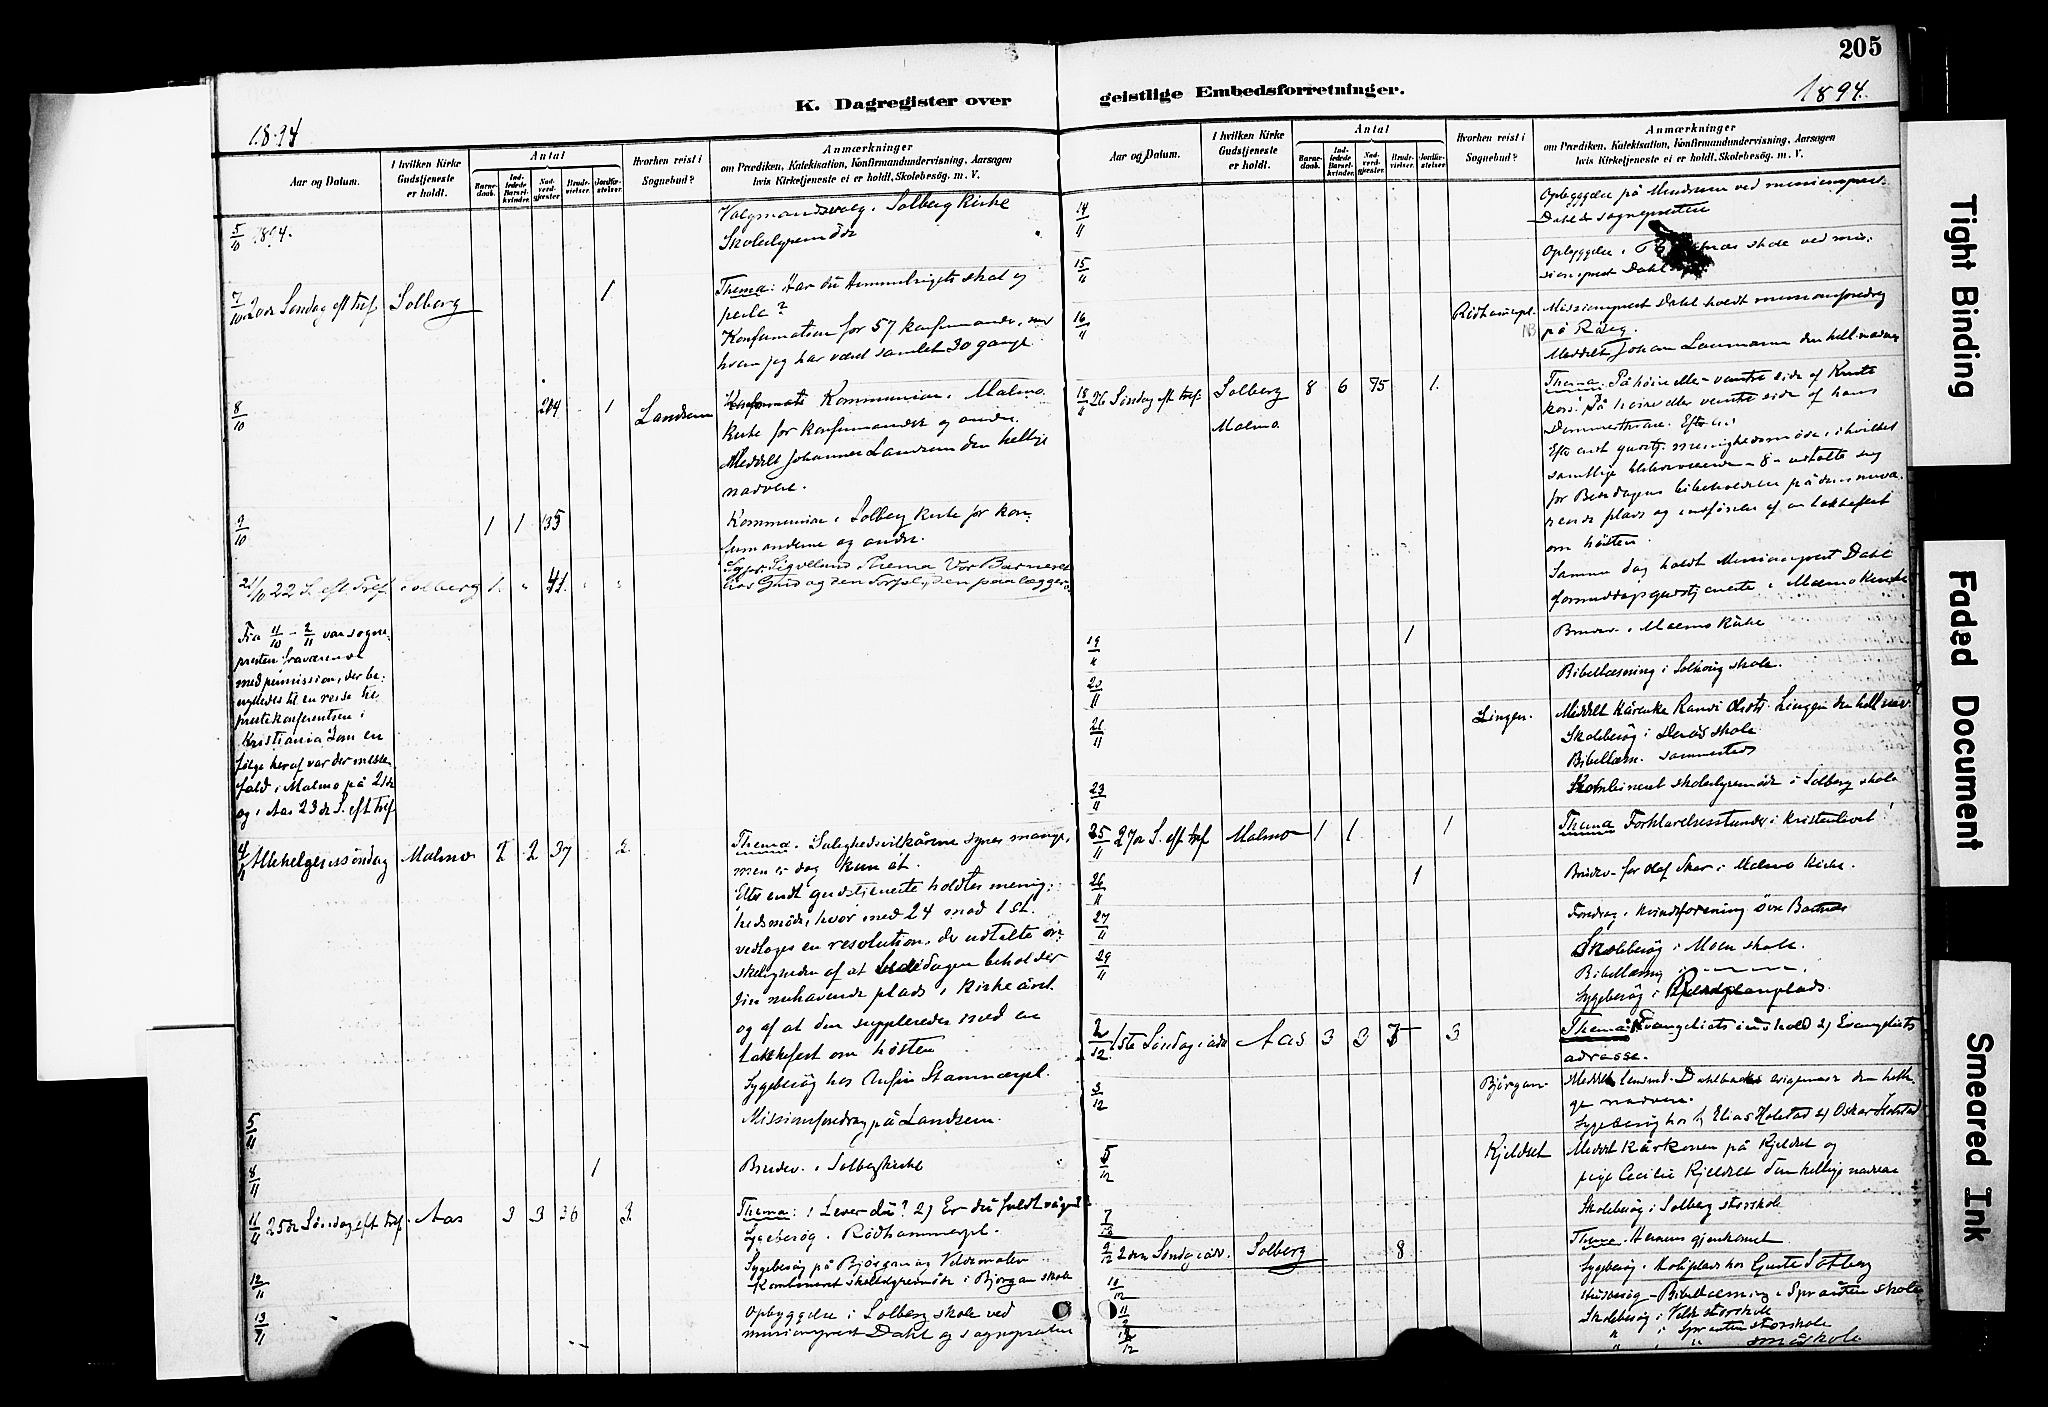 205
K. Dagregister over
geistlige Embedsforretninger.
1894
1894.
Aar og Datum.
I hvilken Kirke Gudstjeneste er holdt.
Antal
Barne-daab.
Ind-ledede Barsel-kvinder.
Nad-verd-gjester.
Brude-vielser.
Jordfæ-stelser.
Hvorhen reist i Sognebud?
Anmærkninger
om Prædiken, Katekisation, Konfirmandundervisning, Aarsagen
hvis Kirketjeneste ei er holdt, Skolebesøg. m. V.
5/10 1894.
Valgmandsvalg i Solberg Kirke
Skolestyremöde
7/10 20de Søndag eft Tref. Solberg 1
Thema: Har du Himmelrigets skat og
perle?
Konfirmation for 57 konfirmander, med
hvem jeg har været samlet 30 gange
8/10 204 1 Landsem
Kommunion i Malmo
Kirke for konfirmander og andre.
Meddelt Johannes Landsem den hellige
nadvere.
9/10 1 1 135
Kommunion i Solberg Kirke for kon-
firmanderne og andre.
21/10 22 S. eft Tref. Solberg 1. " 41. " "
Thema Vor Barneret
hos Gud og den Forpligtelsen paalægger
Fra 11/10 - 2/11 var sogne-
presten fraværende
med permission, der be-
nyttedes til en reise til
prestekonferentsen i
Kristiania Som en
følge heraf var der messe-
fald i Malmo på 21de
og i Aas 23de S. eft Tref
4/11 Allehelgenssøndag Malmo 2 2 37 2
Thema. Salighedsvilkårene synes mange,
men er dog kun ét.
Efter endt gudstjeneste holdtes menig-
hedsmöde, hvor med 24 mod 1 st.
vedtoges en resolution, der udtalte ön-
skeligheden af at Bededagen beholder
sin nuhavende plads i Kirkeåret
og af at den suppleredes med en
takkefest om høsten
Sygebesøg hos
5/11
Missionsforedrag på Landsem.
8/11 1
Brudev. i Solberg kirke
11/11 25de Søndag eft Tref. Aas 3 3 36 3.
Thema: 1 Lever du? 2) Er du fuldt vågen?
Sygebesøg i Rödhammerpl.
12/11
Sygebesøg på Bjørgan og Veldemoler
Kombineret skolestyremöde i Bjørgan skole
13/11
Opbyggelse i Solberg skole ved
missionsprest Dahl og sognepresten
Aar og Datum.
I hvilken Kirke Gudstjeneste er holdt.
Antal
Barne-daab.
Ind-ledede Barsel-kvinder.
Nad-verd-gjester.
Brude-vielser.
Jordfæ-stelser.
Hvorhen reist i Sognebud?
Anmærkninger
om Prædiken, Katekisation, Konfirmandundervisning, Aarsagen
hvis Kirketjeneste ei er holdt, Skolebesøg. m. V.
14/11
Opbyggelse på ved missionsprest
Dahl & sognepresten
15/11
Opbyggelse i skole ved mis-
sionsprest Dahl
16/11 Rödhammerpl.
Missionsprest Dahl holdt missionsforedrag
på
Meddelt Johan den hell. nadvere
18/11 26 Søndag eft tref. Solberg 8 6 75 1.
Malmo
Thema. På höire eller venstre side af Kristi
kors! På höire eller venstre side af hans
Dommerthrone.
Efter endt gudstj. menighedsmöde, i hvilket
samtlige tilstedeværende - 8 - udtalte sig
for Bededagens bibeholdelse på dens nuvæ-
rende plads og indförelse af en takkefest
om hösten
Samme dag holdt Missionsprest Dahl
formiddagsgudstjeneste i Malmo Kirke
19/11 1
Brudev. i Malmo Kirke
20/11
Bibellæsning i Solberg skole.
21/11 Lingen.
Meddelt Karenke Randi Olsdtr. Linggen den hell nav.
Skolebesøg i skole
Bibellæsn. sammesteds
23/11
Kombineret skolestyremöde i Solberg skole
25/11 27de S. eft tref Malmo 1 1 1
Thema Forklarelsesstunder i kristenlivet!
26/11 1
Brudev. for Olaf Skar i Malmo Kirke.
27/11
Foredrag i Kvindeforening Övre
29/11
Skolebesøg i Moen skole.
Bibellæsning i — — — .
Sygebesøg i
2/12 1ste Søndag i adv Aas 3 3 3
Thema 1) Evangeliets indhold 2) Evangeliets
adresse.
3/12 Bjørgan.
Meddelt den helli-
ge nadvere.
Sygebesøg hos 1) Elias Holstad 2) Oskar Holstad
5/12 Kjeldset
Meddelt Kårkonen på Kjeldset og
pige Cecilie Kjeldset den hellige nadvere
7/12
Skolebesøg i Solberg storskole
9/12 2den Søndag i adv. Solberg 8
Thema. Herrens gjenkomst
10/12
Sygebesøg i hos
11/12
Husbesøg - Bibellæsning i skole
Skolebesøg i storskole
12/12
" i storskole
" " småskole
Tight Binding
Faded Document
Smeared Ink